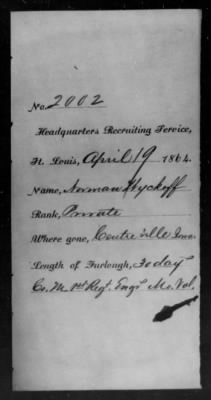 No. 2002
Headquarters Recruiting Service,
St. Louis, April 19 1864.
Name, Norman Wyckoff
Rank, Private
Where gone, Centreville Iowa
Length of Furlough, 30 days
Co. M 1st Regt. Engr. Mo. Vol.